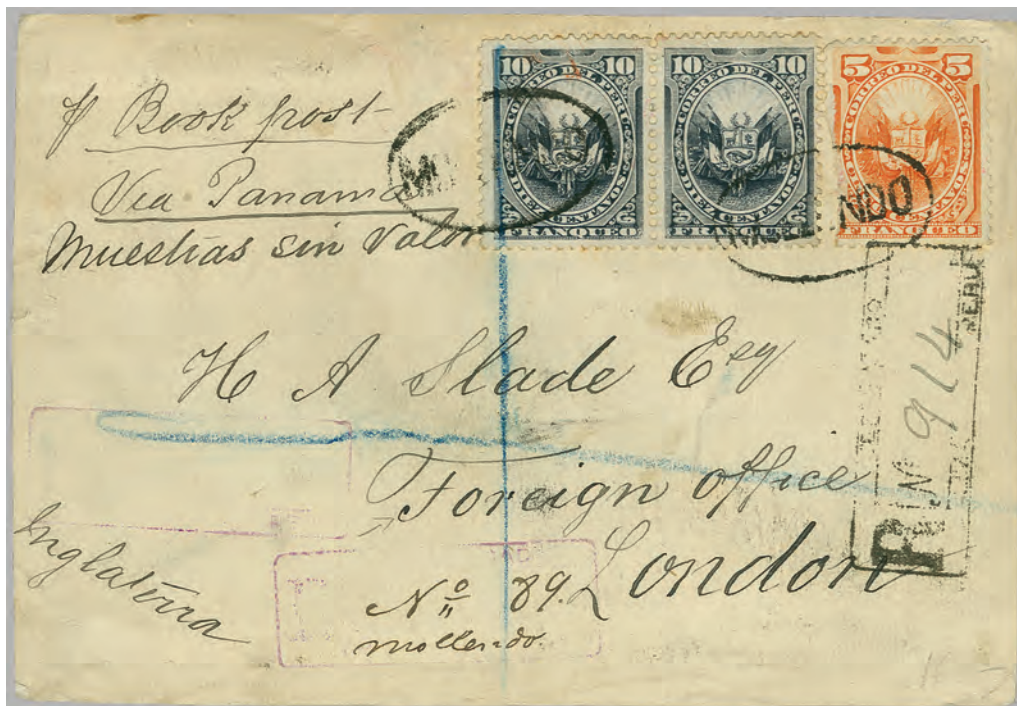 10 10
CORREO DEL PERU
DIEZ CENTAVOS
FRANQUEO
10 10
CORREO DEL PERU
DIEZ CENTAVOS
FRANQUEO
5 5
CORREO DEL PERU
CENTAVOS
FRANQUEO
p Book post
Via Panama
Muestras sin valor
H A Slade Esqy
Foreign office
London
Inglaterra
No 89.
Mollendo.
R No 914